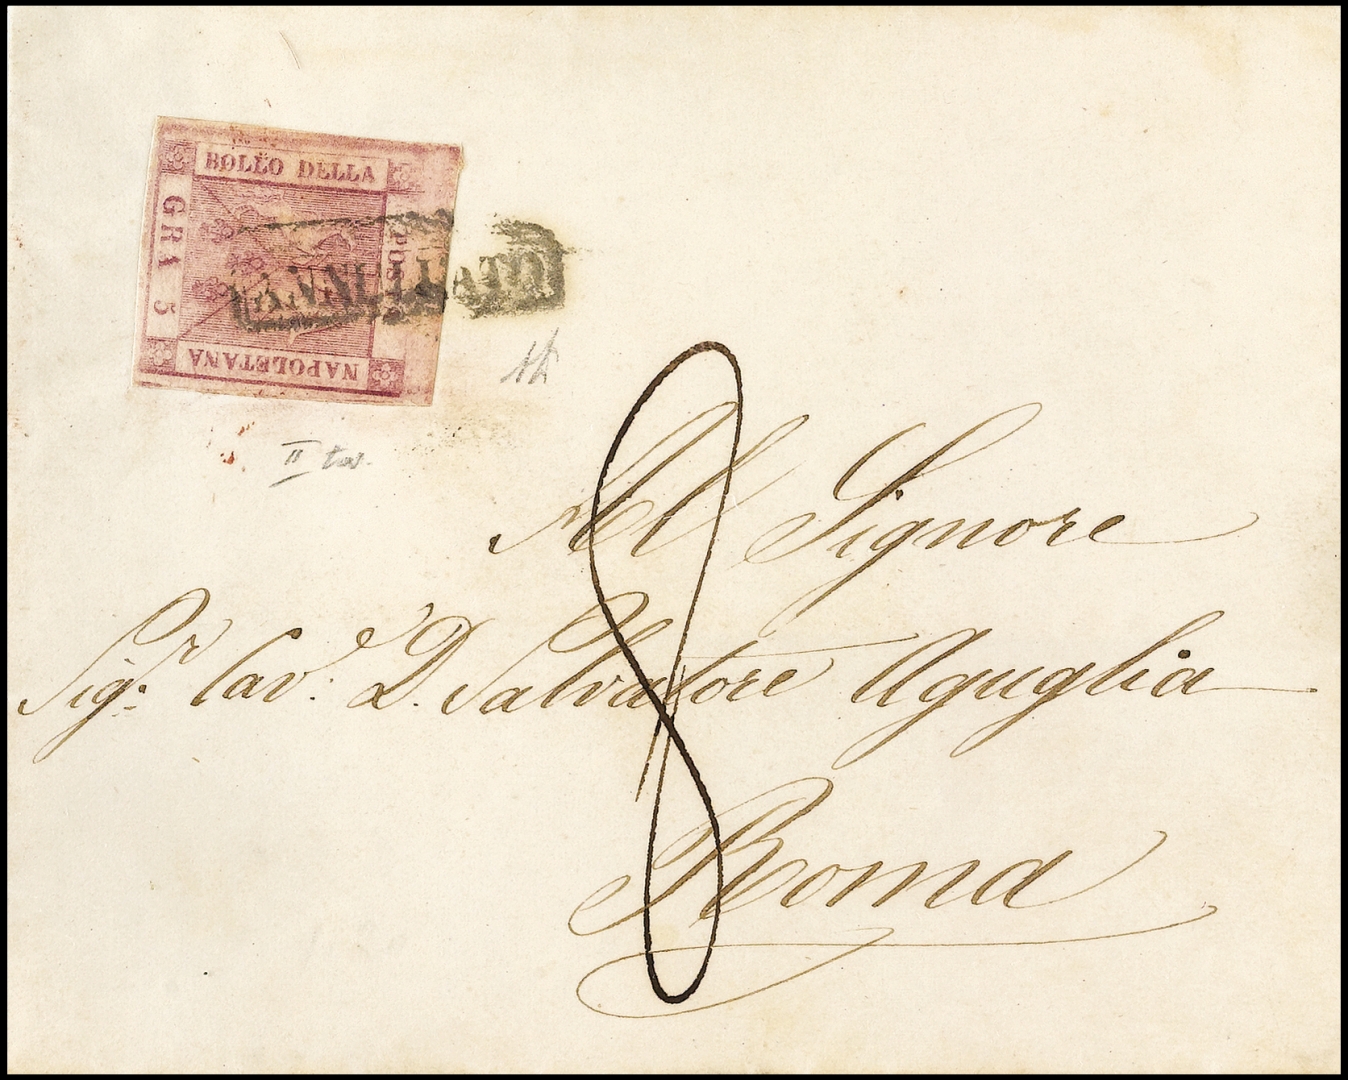 BOLLO DELLA
POS
GRA 5
NAPOLETANA
ANNULLATO
II tav.
8
All Signore
Sig.r Cav.e D. Salvatore Aguglia
Roma